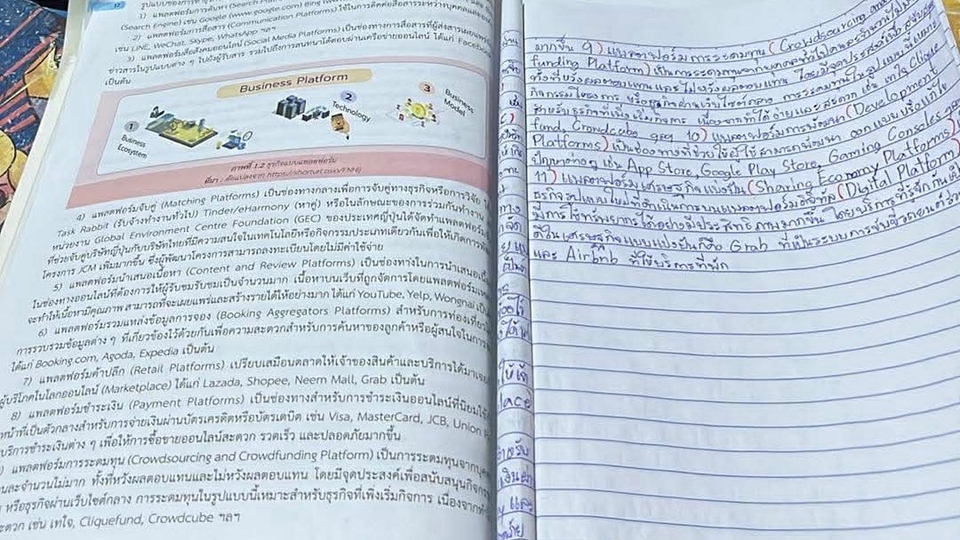 รูปแบบของการ
1) แพลตฟอร์มการค้นหา
(Search Engine) เช่น Google (www.google.com) Bing
2) แพลตฟอร์มการสื่อสาร (Communication Platforms) ใช้ในการติดต่อสื่อสารระหว่างบุคคล
เช่น LINE, WeChat, Skype, WhatsApp ฯลฯ
3) แพลตฟอร์มสื่อสังคมออนไลน์ (Social Media Platforms) เป็นช่องทางการสื่อสารที่ผู้ส่งสาร
ข่าวสารในรูปแบบต่าง ๆ ไปยังผู้รับสาร รวมไปถึงการสนทนาโต้ตอบผ่านเครือข่ายออนไลน์ ได้แก่ Facebook
เป็นต้น
Business Platform
1 Business Ecosystem
2 Technology
3 Business Model
ภาพที่ 1.2 ธุรกิจแบบแพลตฟอร์ม
ที่มา : ดัดแปลงจาก
4) แพลตฟอร์มจับคู่ (Matching Platforms) เป็นช่องทางกลางเพื่อการจับคู่ทางธุรกิจหรือการวิจัย ได้
Task Rabbit (รับจ้างทำงานทั่วไป) Tinder/eHarmony (หาคู่) หรือในลักษณะของการร่วมกันทำงาน
หน่วยงาน Global Environment Centre Foundation (GEC) ของประเทศญี่ปุ่นได้จัดทำแพลตฟอร์ม
ที่ช่วยจับคู่บริษัทญี่ปุ่นกับบริษัทไทยที่มีความสนใจในเทคโนโลยีหรือกิจกรรมประเภทเดียวกันเพื่อให้เกิดการพัฒนา
โครงการ JCM เพิ่มมากขึ้น ซึ่งผู้พัฒนาโครงการสามารถลงทะเบียนโดยไม่มีค่าใช้จ่าย
5) แพลตฟอร์มนำเสนอเนื้อหา (Content and Review Platforms) เป็นช่องทางในการนำเสนอเนื้อ
ในช่องทางออนไลน์ที่ต้องการให้ผู้รับชมรับชมเป็นจำนวนมาก เนื้อหาบนเว็บที่ถูกจัดการโดยแพลตฟอร์ม
จะทำให้เนื้อหามีคุณภาพ สามารถที่จะเผยแพร่และสร้างรายได้ให้อย่างมาก ได้แก่ YouTube, Yelp, Wongnai เป็น
6) แพลตฟอร์มรวมแหล่งข้อมูลการจอง (Booking Aggregators Platforms) สำหรับการท่องเที่ยว
การรวบรวมข้อมูลต่าง ๆ ที่เกี่ยวข้องไว้ด้วยกันเพื่อความสะดวกสำหรับการค้นหาของลูกค้าหรือผู้สนใจในการ
ได้แก่ Booking.com, Agoda, Expedia เป็นต้น
7) แพลตฟอร์มค้าปลีก (Retail Platforms) เปรียบเสมือนตลาดให้เจ้าของสินค้าและบริการได้มา
ผู้บริโภคในโลกออนไลน์ (Marketplace) ได้แก่ Lazada, Shopee, Neem Mall, Grab เป็นต้น
8) แพลตฟอร์มชำระเงิน (Payment Platforms) เป็นช่องทางสำหรับการชำระเงินออนไลน์ที่นิยมใช้
หน้าที่เป็นตัวกลางสำหรับการจ่ายเงินผ่านบัตรเครดิตหรือบัตรเดบิต เช่น Visa, MasterCard, JCB, Union
บริการชำระเงินต่าง ๆ เพื่อให้การซื้อขายออนไลน์สะดวก รวดเร็ว และปลอดภัยมากขึ้น
แพลตฟอร์มการระดมทุน (Crowdsourcing and Crowdfunding Platform) เป็นการระดมทุนจากบุคคล
นละจำนวนไม่มาก ทั้งที่หวังผลตอบแทนและไม่หวังผลตอบแทน โดยมีจุดประสงค์เพื่อสนับสนุนกิจกรรม
หรือธุรกิจผ่านเว็บไซต์กลาง การระดมทุนในรูปแบบนี้เหมาะสำหรับธุรกิจที่เพิ่งเริ่มกิจการ เนื่องจาก
ะดวก เช่น เทใจ, Cliquefund, Crowdcube ฯลฯ
มากขึ้น 9) แพลตฟอร์มการระดมทุน (Crowdsourcing and
funding Platform) เป็นการระดมทุนจากบุคคล
ทั้งที่หวังผลตอบแทน และไม่หวังผลตอบแทน โดยมีจุดประสงค์เพื่อสนับสนุน
กิจกรรม โครงการ หรือธุรกิจผ่านเว็บไซต์กลาง การระดมทุนในรูปแบบนี้
สำหรับธุรกิจที่เพิ่งเริ่มกิจการ เนื่องจากทำได้ง่ายและสะดวก เช่น เทใจ Clique
fund, Crowdcube ฯลฯ 10) แพลตฟอร์มการพัฒนา (Development
Platforms) เป็นช่องทางที่ช่วยให้ผู้ใช้สามารถพัฒนา ออกแบบ หรือแก้ไข
ปัญหาต่าง ๆ เช่น App Store, Google Play Store, Gaming Consoles
11) แพลตฟอร์มเศรษฐกิจแบ่งปัน (Sharing Economy Platforms)
ธุรกิจรูปแบบใหม่ที่ดำเนินการบนแพลตฟอร์มดิจิทัล (Digital Platform)
มีการใช้ทรัพยากรได้อย่างมีประสิทธิภาพมากขึ้น โดยบริการที่รู้จักกัน
ดีในเศรษฐกิจแบบแบ่งปันก็คือ Grab ที่เป็นระบบการขับขี่
และ Airbnb ที่ใช้บริการที่พัก
lace